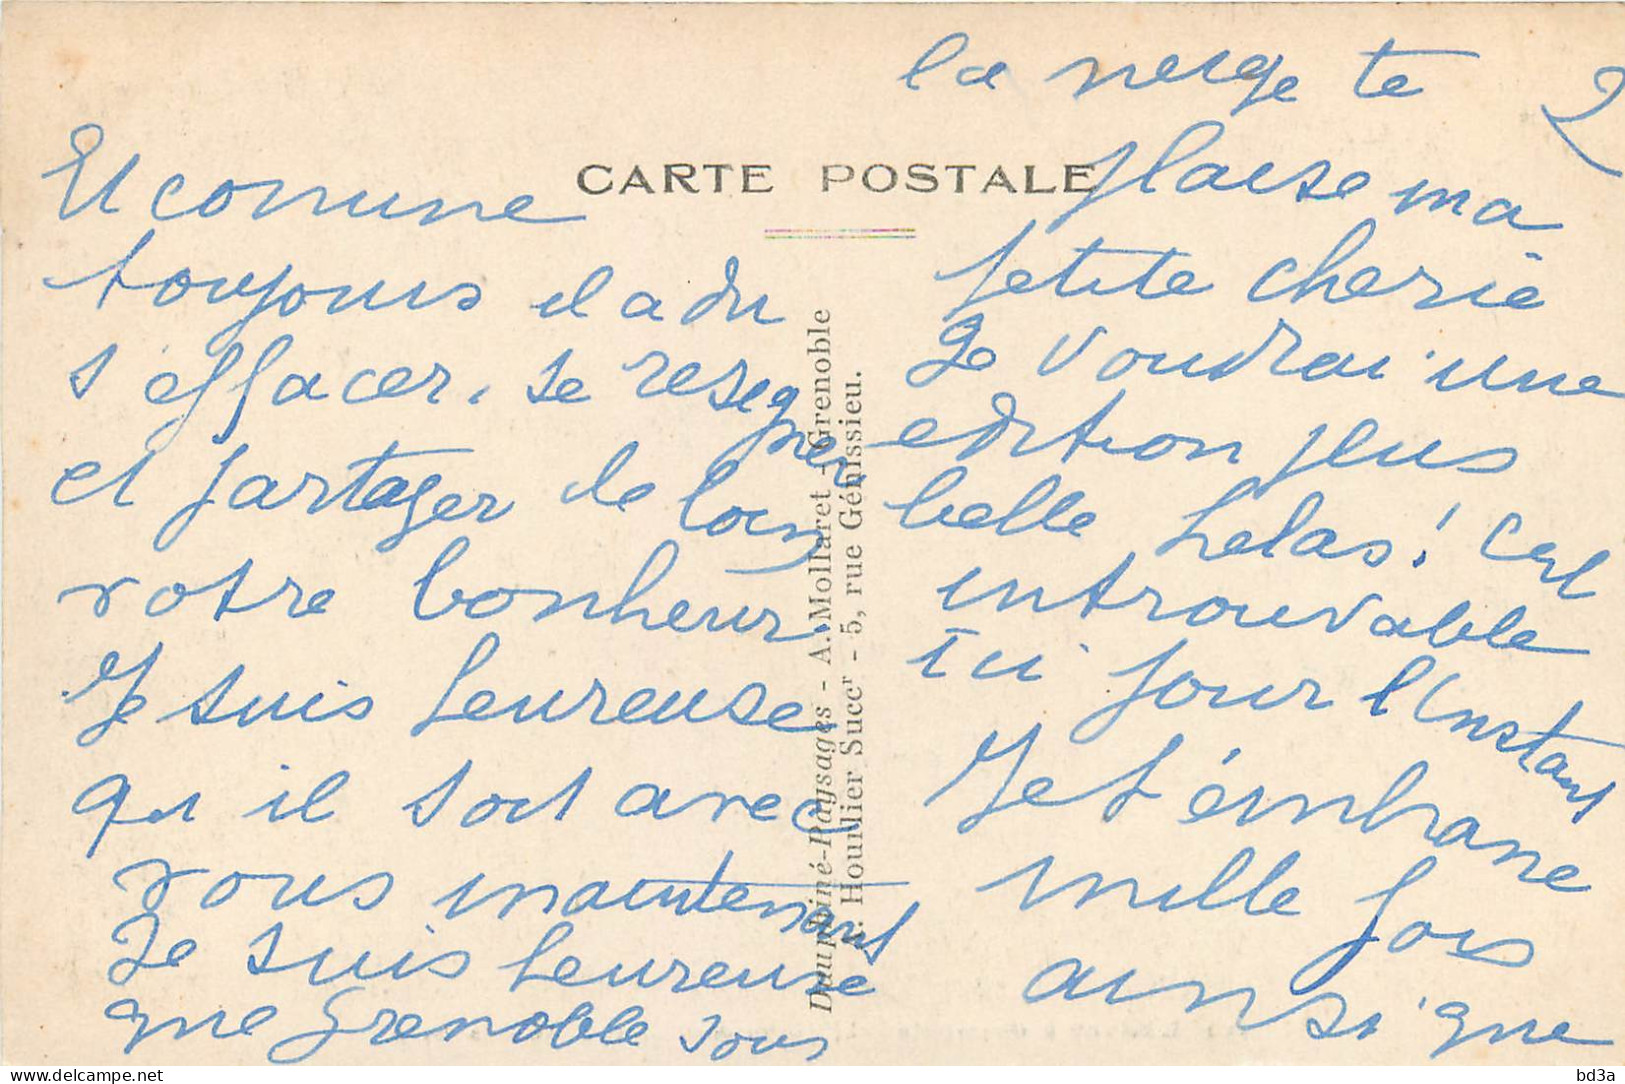 CARTE POSTALE
2
Et comme
toujours il a du
s'effacer, se resegner
et partager de loin
votre bonheur.
Je suis heureuse
qu'il soit avec
vous maintenant
Je suis heureuse
que Grenoble sous
la neige te
plaise ma
petite cherie
Je voudrai une
edition plus
belle helas! c'est
introuvable
Ici pour l'instant
Je t'embrasse
mille fois
ainsi que
Dauphiné-Paysages - A. Mollaret - Grenoble
Hourlier Succr - 5, rue Génissieu.
bd3a
delcampe.net